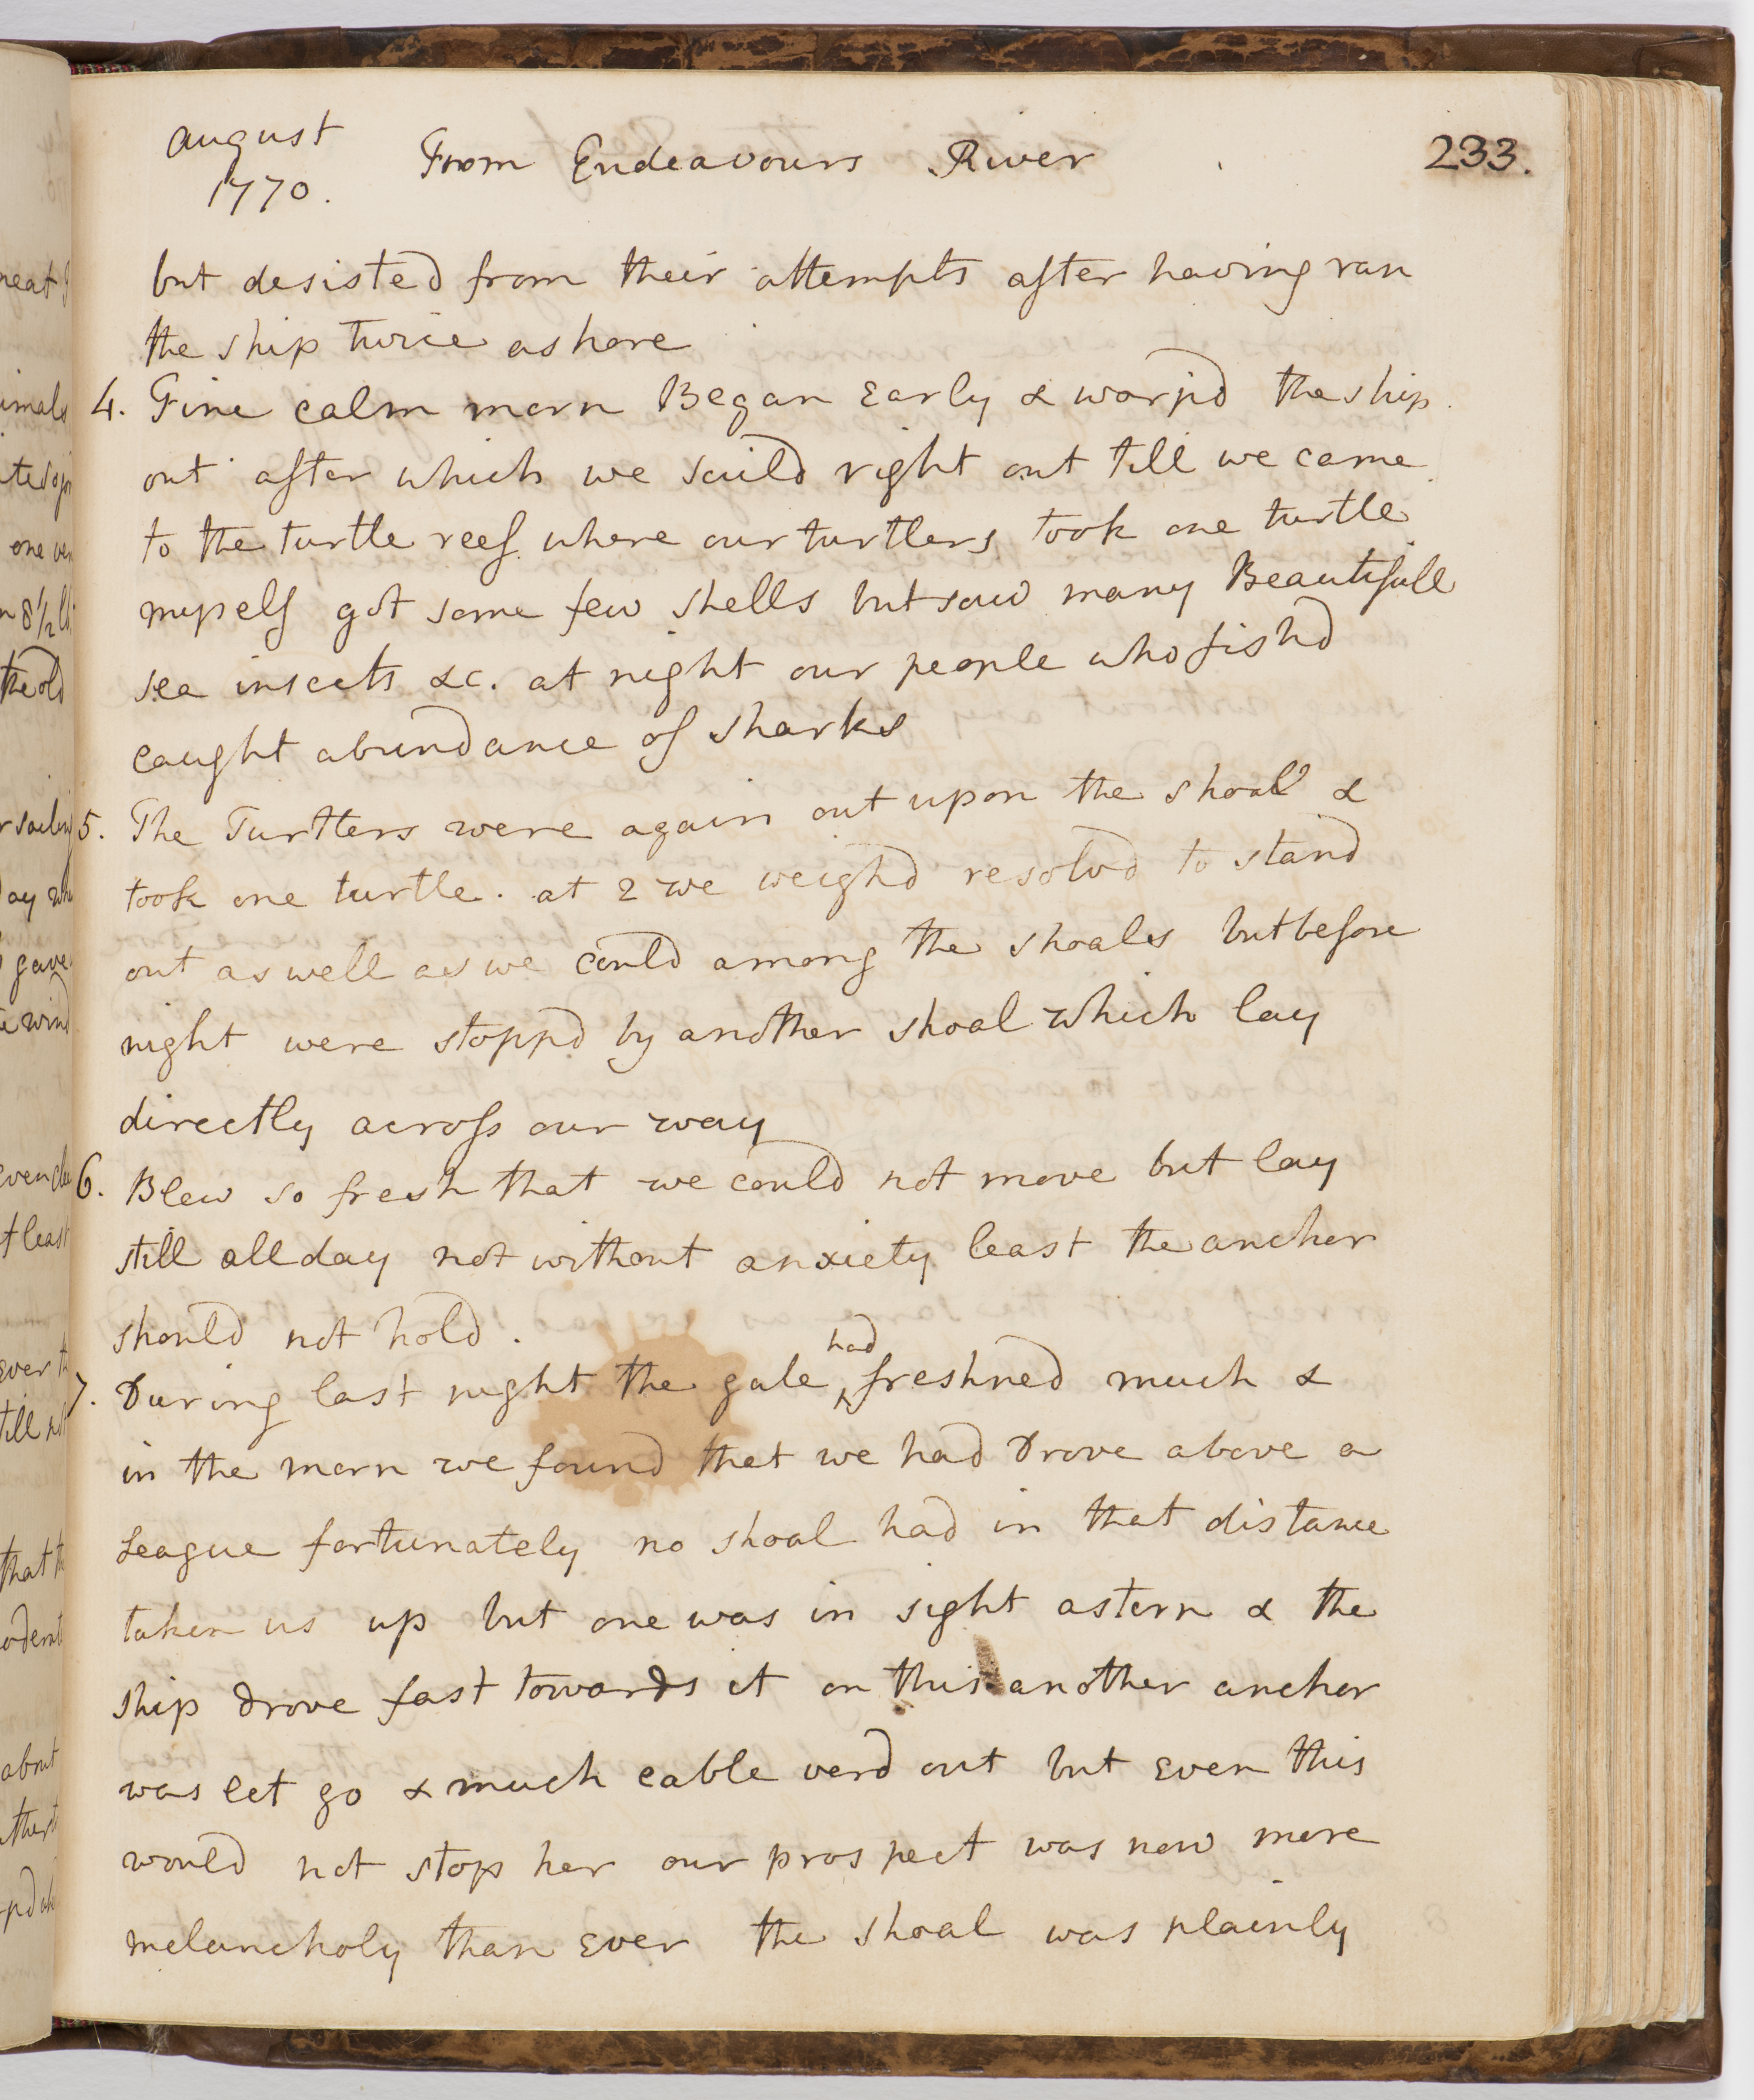 august
1770.
From Endeavours River
233.
but desisted from their attempts after having ran
the ship twice ashore
4. Fine calm morn Began Early & warpd the ship
out after which we saild right out till we came
to the turtle reef where our turtlers took one turtle
myself got some few shells but saw many Beautifull
sea insects &c. at night our people who fishd
caught abundance of sharks
5. The Turtlers were again out upon the shoal &
took one turtle. at 2 we weighd resolvd to stand
out as well as we could among the shoales but before
night were stoppd by another shoal which lay
directly across our way
6. Blew so fresh that we could not move but lay
still all day not without anxiety least the anchor
should not hold.
7. During last night the gale had freshned much &
in the morn we found that we had Drove above a
League fortunately no shoal had in that distance
taken us up but one was in sight astern & the
ship drove fast towards it on this another anchor
was let go & much cable verd out but Even this
would not stop her our prospect was now more
melancholy than Ever the shoal was plainly